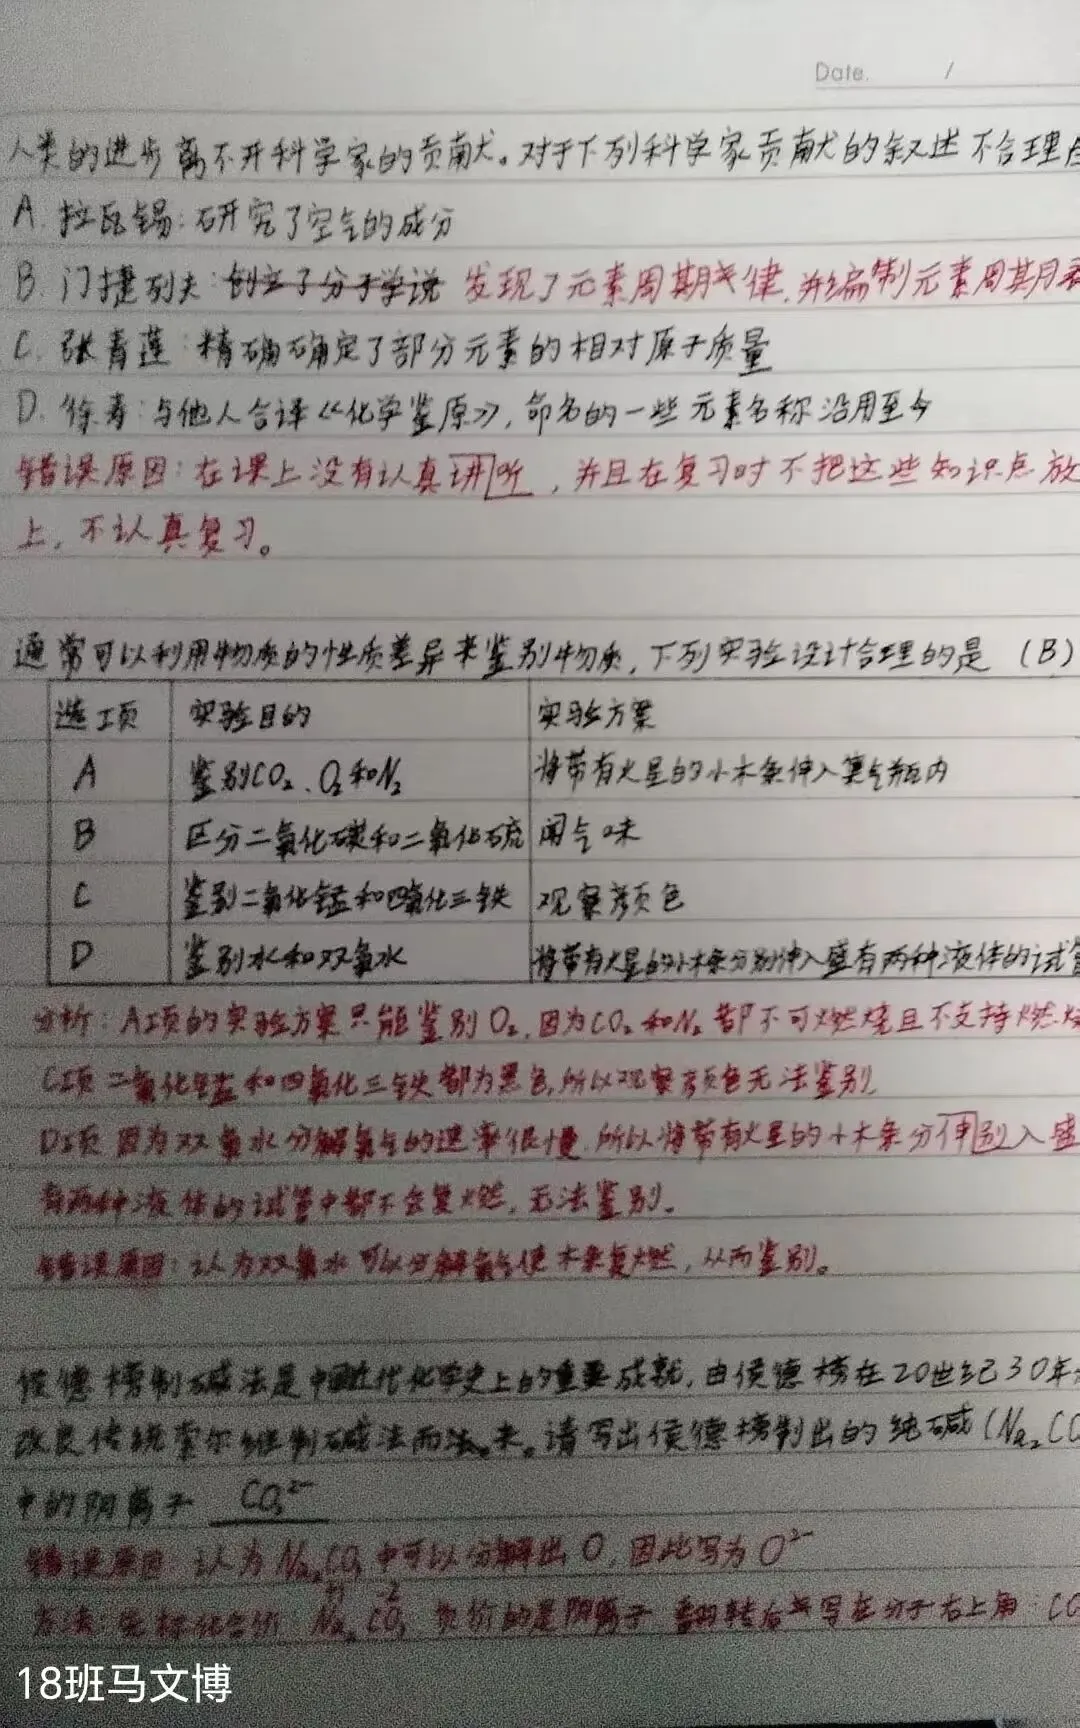 Date. /
人类的进步离不开科学家的贡献。对于下列科学家贡献的叙述不合理
A. 拉瓦锡:研究了空气的成分
B. 门捷列夫:创立了分子学说 发现了元素周期律,并编制元素周期表
C. 张青莲:精确确定了部分元素的相对原子质量
D. 徐寿:与他人合译《化学鉴原》,命名的一些元素名称沿用至今
错误原因:在课上没有认真讲听,并且在复习时不把这些知识点放
上,不认真复习。
通常可以利用物质的性质差异来鉴别物质,下列实验设计合理的是 (B)
选项 实验目的 实验方案
A 鉴别CO₂、O₂和N₂ 将带有火星的小木条伸入集气瓶内
B 区分二氧化碳和二氧化硫 闻气味
C 鉴别二氧化锰和四氧化三铁 观察颜色
D 鉴别水和双氧水 将带有火星的小木条分别伸入盛有两种液体的试管
分析:A项的实验方案只能鉴别O₂,因为CO₂和N₂都不可燃烧且不支持燃烧
C项 二氧化锰和四氧化三铁都为黑色,所以观察颜色无法鉴别
D项 因为双氧水分解氧气的速率很慢,所以将带有火星的小木条分伸别入盛
有两种液体的试管中都不会复燃,无法鉴别。
错误原因:认为双氧水可以分解氧气使木条复燃,从而鉴别。
侯德榜制碱法是中国近代化学史上的重要成就,由侯德榜在20世纪30年
改良传统索尔维制碱法而法。来。请写出侯德榜制出的纯碱(Na₂CO
中的阴离子 CO₃²⁻
错误原因:认为Na₂CO₃中可以分解出O,因此写为O²⁻
方法:先标化合价 +1 -2 Na₂CO₃ 负价的是阴离子 翻转后写在分子右上角:CO
18班马文博